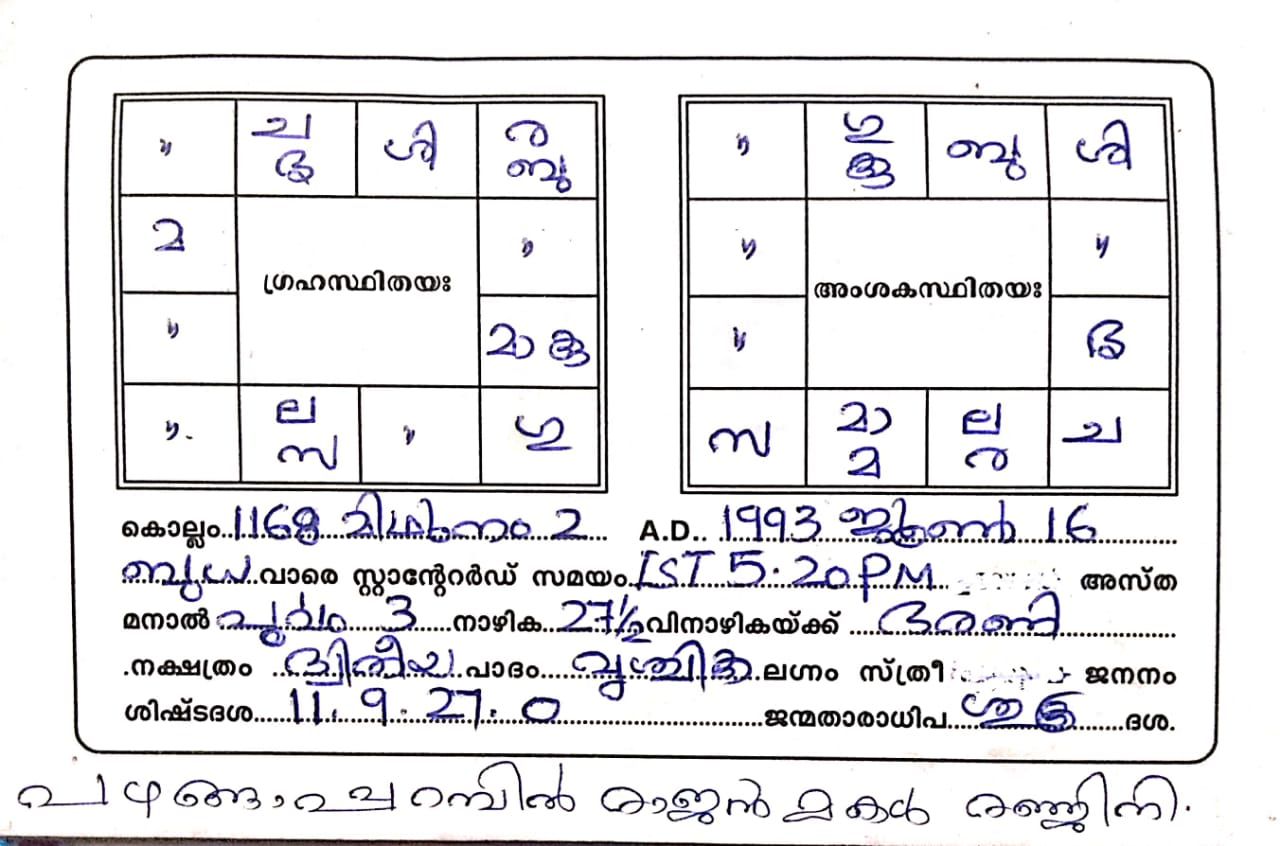 " ച ശി ര
ഭ്ര ബു
മ "
ഗ്രഹസ്ഥിതയഃ
" മാ കു
". ല " ഗു
സ
" ഗു ബു ശി
കു
" "
അംശകസ്ഥിതയഃ
" ഭ്ര
സ മാ ല ച
മ ര
കൊല്ലം..1168 മിഥുനം 2 A.D.. 1993 ജൂൺ 16
ബുധ.വാരെ സ്റ്റാന്റേർഡ് സമയം.IST 5.20 PM അസ്ത
മനാൽ പൂർവം 3 നാഴിക 27½ വിനാഴികയ്ക്ക് ഭരണി
.നക്ഷത്രം ദ്വിതീയ പാദം വൃശ്ചിക ലഗ്നം സ്ത്രീ ജനനം
ശിഷ്ടദശ 11.9.27.0 ജന്മതാരാധിപ ശുക്ര ദശ.
രാജൻ മകൾ രഞ്ജിനി.